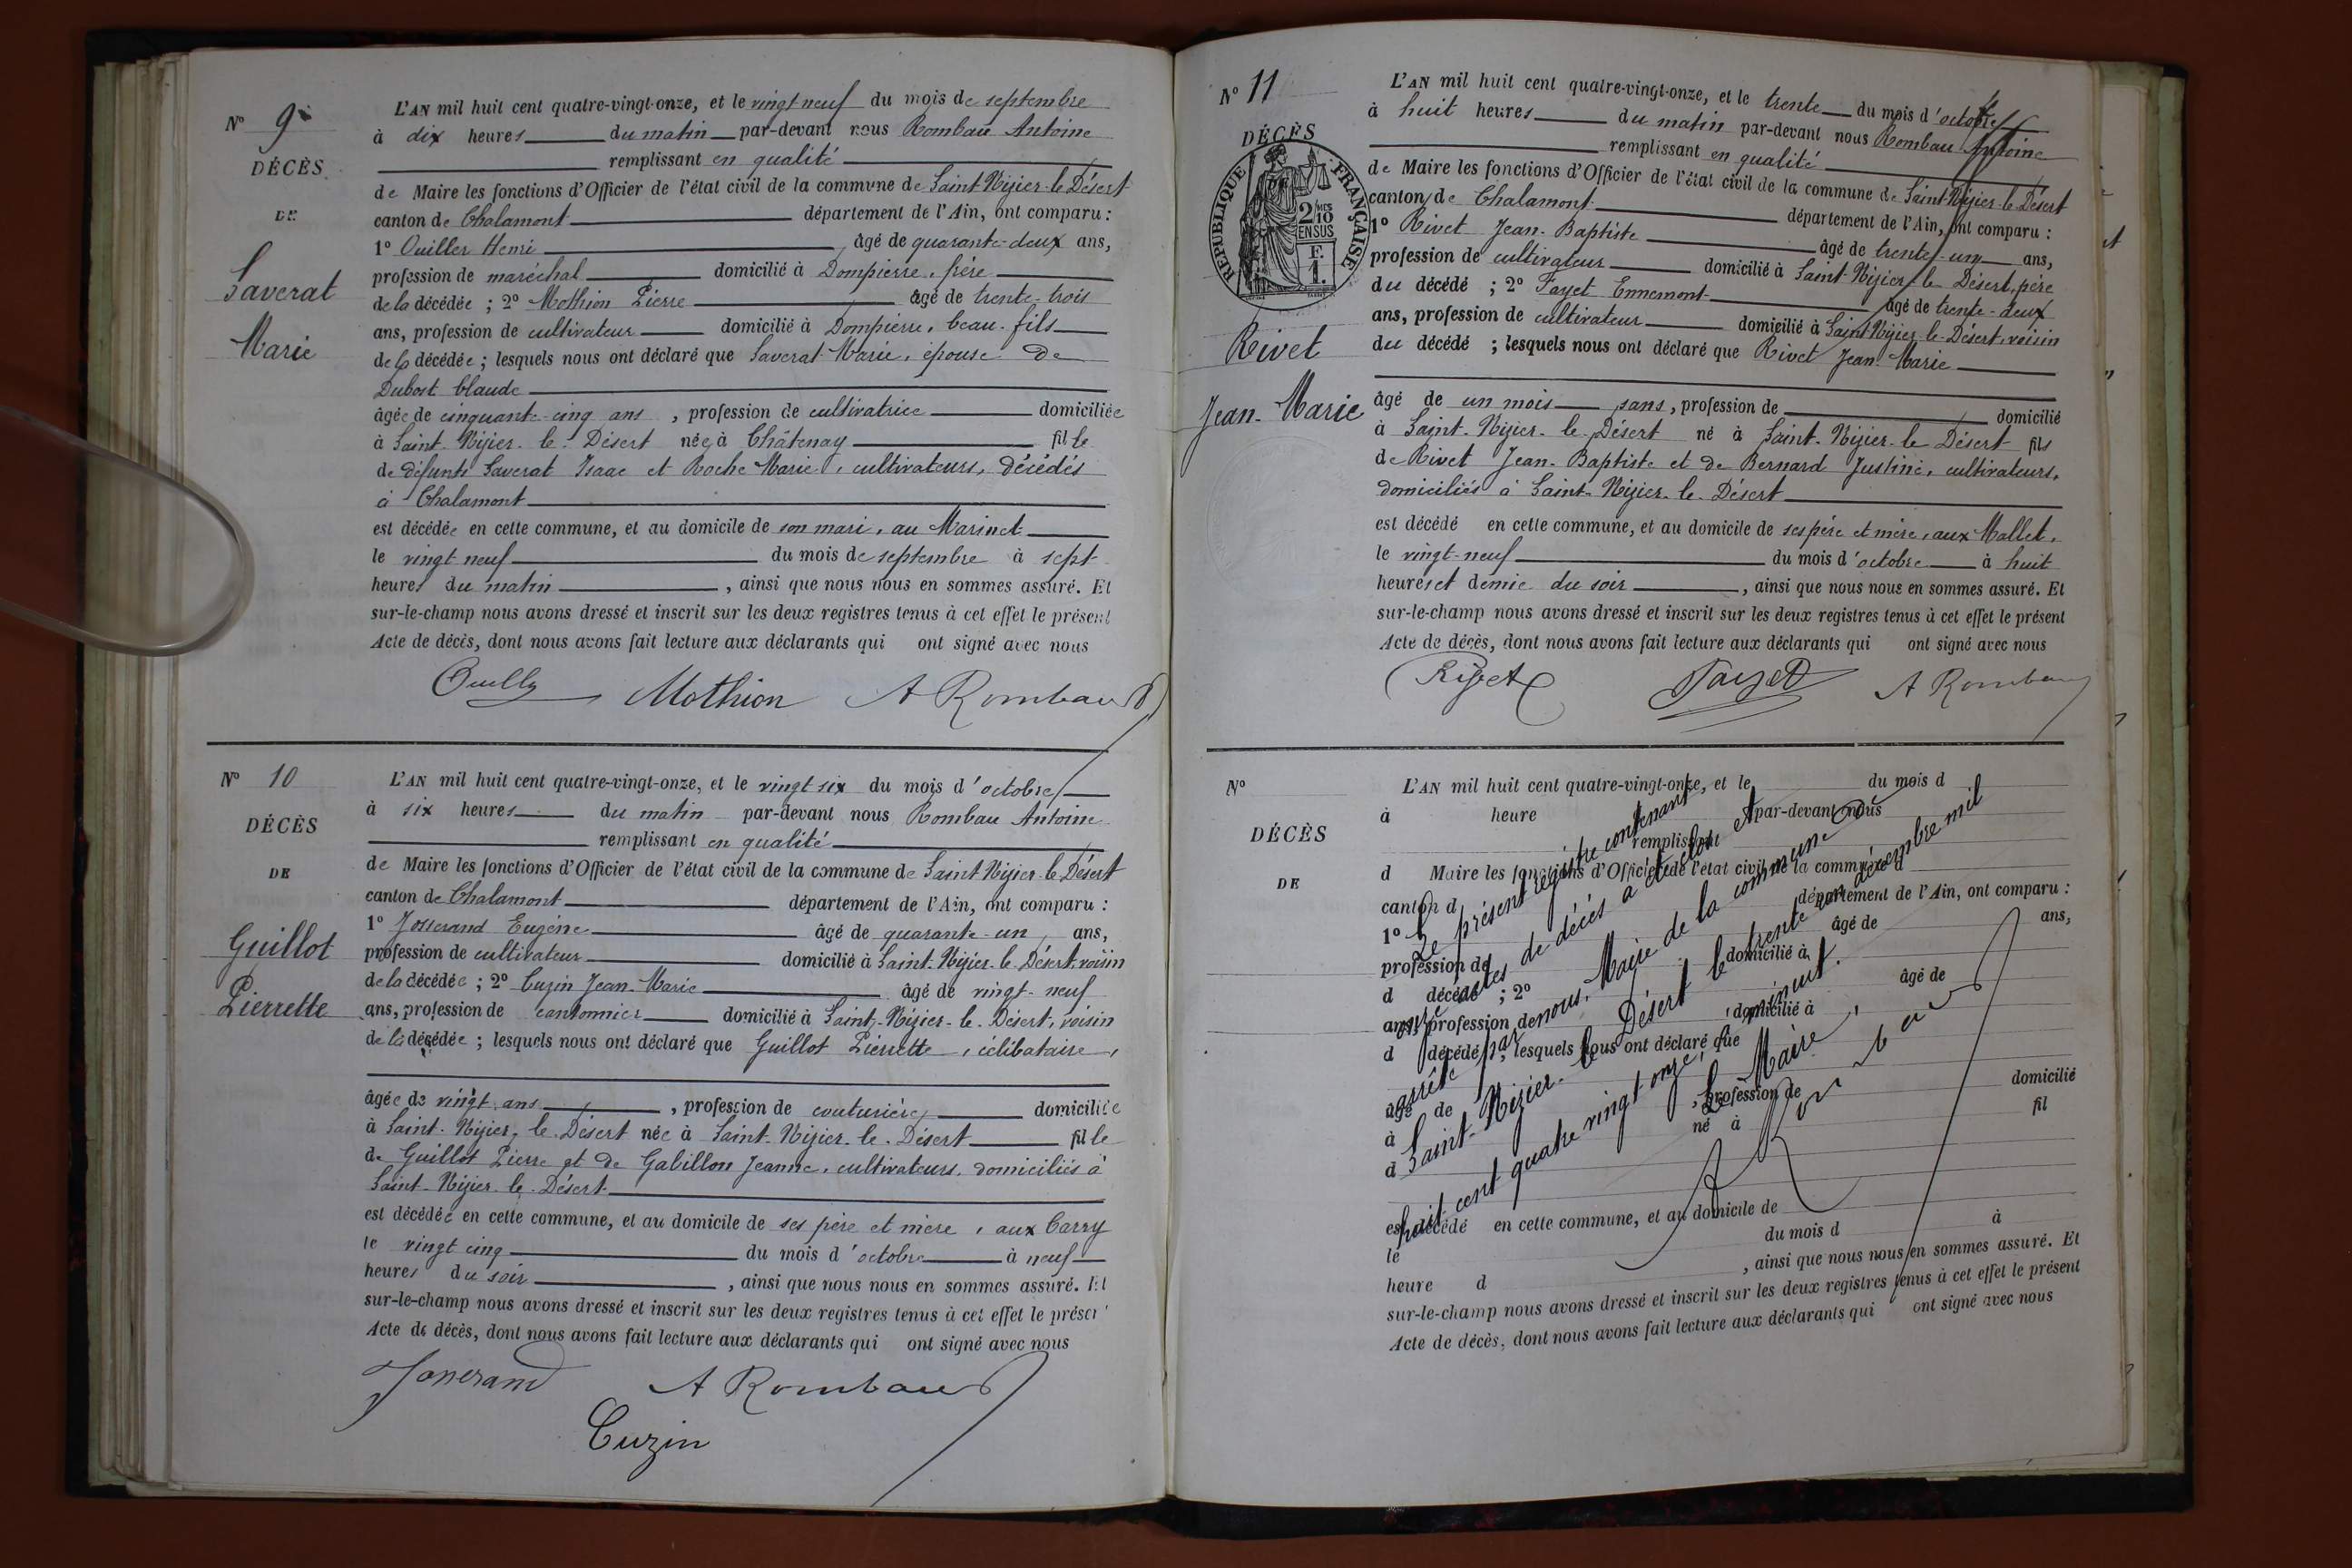 N° 9
DÉCÈS
DE
Saverat
Marie
L'AN mil huit cent quatre-vingt-onze, et le vingt neuf du mois de septembre
à dix heures du matin par-devant nous Rombau Antoine
remplissant en qualité
de Maire les fonctions d'Officier de l'état civil de la commune de Saint Nizier-le-Désert
canton de Chalamont département de l'Ain, ont comparu :
1° Ouiller Henri âgé de quarante-deux ans,
profession de maréchal domicilié à Dompierre, frère
de la décédée ; 2° Mothion Pierre âgé de trente-trois
ans, profession de cultivateur domicilié à Dompierre, beau-fils
de la décédée ; lesquels nous ont déclaré que Saverat Marie, épouse de
Dubost Claude
âgée de cinquante-cinq ans, profession de cultivatrice domiciliée
à Saint-Nizier-le-Désert née à Châtenay fille
de défunts Saverat Isaac et Roche Marie, cultivateurs, décédés
à Chalamont
est décédée en cette commune, et au domicile de son mari, au Marinet
le vingt neuf du mois de septembre à sept
heures du matin, ainsi que nous nous en sommes assuré. Et
sur-le-champ nous avons dressé et inscrit sur les deux registres tenus à cet effet le présent
Acte de décès, dont nous avons fait lecture aux déclarants qui ont signé avec nous
Mothion A Rombau
N° 10
DÉCÈS
DE
Guillot
Pierrette
L'AN mil huit cent quatre-vingt-onze, et le vingt six du mois d'octobre
à six heures du matin par-devant nous Rombau Antoine
remplissant en qualité
de Maire les fonctions d'Officier de l'état civil de la commune de Saint Nizier-le-Désert
canton de Chalamont département de l'Ain, ont comparu :
1° Josserand Eugène âgé de quarante-un ans,
profession de cultivateur domicilié à Saint-Nizier-le-Désert, voisin
de la décédée ; 2° Cuzin Jean-Marie âgé de vingt-neuf
ans, profession de cantonnier domicilié à Saint-Nizier-le-Désert, voisin
de la décédée ; lesquels nous ont déclaré que Guillot Pierrette, célibataire,
âgée de vingt ans, profession de couturière, domiciliée
à Saint-Nizier-le-Désert née à Saint-Nizier-le-Désert fille
de Guillot Pierre et de Gabillon Jeanne, cultivateurs, domiciliés à
Saint-Nizier-le-Désert
est décédée en cette commune, et au domicile de ses père et mère, aux Carry
le vingt cinq du mois d'octobre à neuf
heures du soir, ainsi que nous nous en sommes assuré. Et
sur-le-champ nous avons dressé et inscrit sur les deux registres tenus à cet effet le présent
Acte de décès, dont nous avons fait lecture aux déclarants qui ont signé avec nous
Josserand A Rombau
Cuzin
N° 11
DÉCÈS
RÉPUBLIQUE FRANÇAISE
2/10 MES
EN SUS
F.
1.
Rivet
Jean-Marie
L'AN mil huit cent quatre-vingt-onze, et le trente du mois d'octobre
à huit heures du matin par-devant nous Rombau Antoine
remplissant en qualité
de Maire les fonctions d'Officier de l'état civil de la commune de Saint-Nizier-le-Désert
canton de Chalamont département de l'Ain, ont comparu :
1° Rivet Jean-Baptiste âgé de trente-un ans,
profession de cultivateur domicilié à Saint-Nizier-le-Désert, père
du décédé ; 2° Fayet Ennemont âgé de trente-deux
ans, profession de cultivateur domicilié à Saint Nizier-le-Désert, voisin
du décédé ; lesquels nous ont déclaré que Rivet Jean-Marie
âgé de un mois sans, profession de domicilié
à Saint-Nizier-le-Désert né à Saint-Nizier-le Désert fils
de Rivet Jean-Baptiste et de Bernard Justine, cultivateurs,
domiciliés à Saint-Nizier-le-Désert
est décédé en cette commune, et au domicile de ses père et mère, aux Mallet,
le vingt-neuf du mois d'octobre à huit
heures et demie du soir, ainsi que nous nous en sommes assuré. Et
sur-le-champ nous avons dressé et inscrit sur les deux registres tenus à cet effet le présent
Acte de décès, dont nous avons fait lecture aux déclarants qui ont signé avec nous
Rivet Fayet A Rombau
N°
DÉCÈS
DE
L'AN mil huit cent quatre-vingt-onze, et le du mois d
à heure par-devant nous
remplissant
d Maire les fonctions d'Officier de l'état civil de la commune d
canton d département de l'Ain, ont comparu :
1° âgé de ans,
profession de domicilié à
d décédé ; 2° âgé de
ans, profession de domicilié à
d décédé ; lesquels nous ont déclaré que
âgé de , profession de domicilié
à né à fil
d
est décédé en cette commune, et au domicile de
le du mois d à
heure d , ainsi que nous nous en sommes assuré. Et
sur-le-champ nous avons dressé et inscrit sur les deux registres tenus à cet effet le présent
Acte de décès, dont nous avons fait lecture aux déclarants qui ont signé avec nous
Le présent registre contenant
onze actes de décès a été clos et
arrêté par nous, Maire de la commune de
Saint-Nizier-le Désert le trente un décembre mil
huit cent quatre vingt onze, à minuit.
Le Maire,
A Rombau